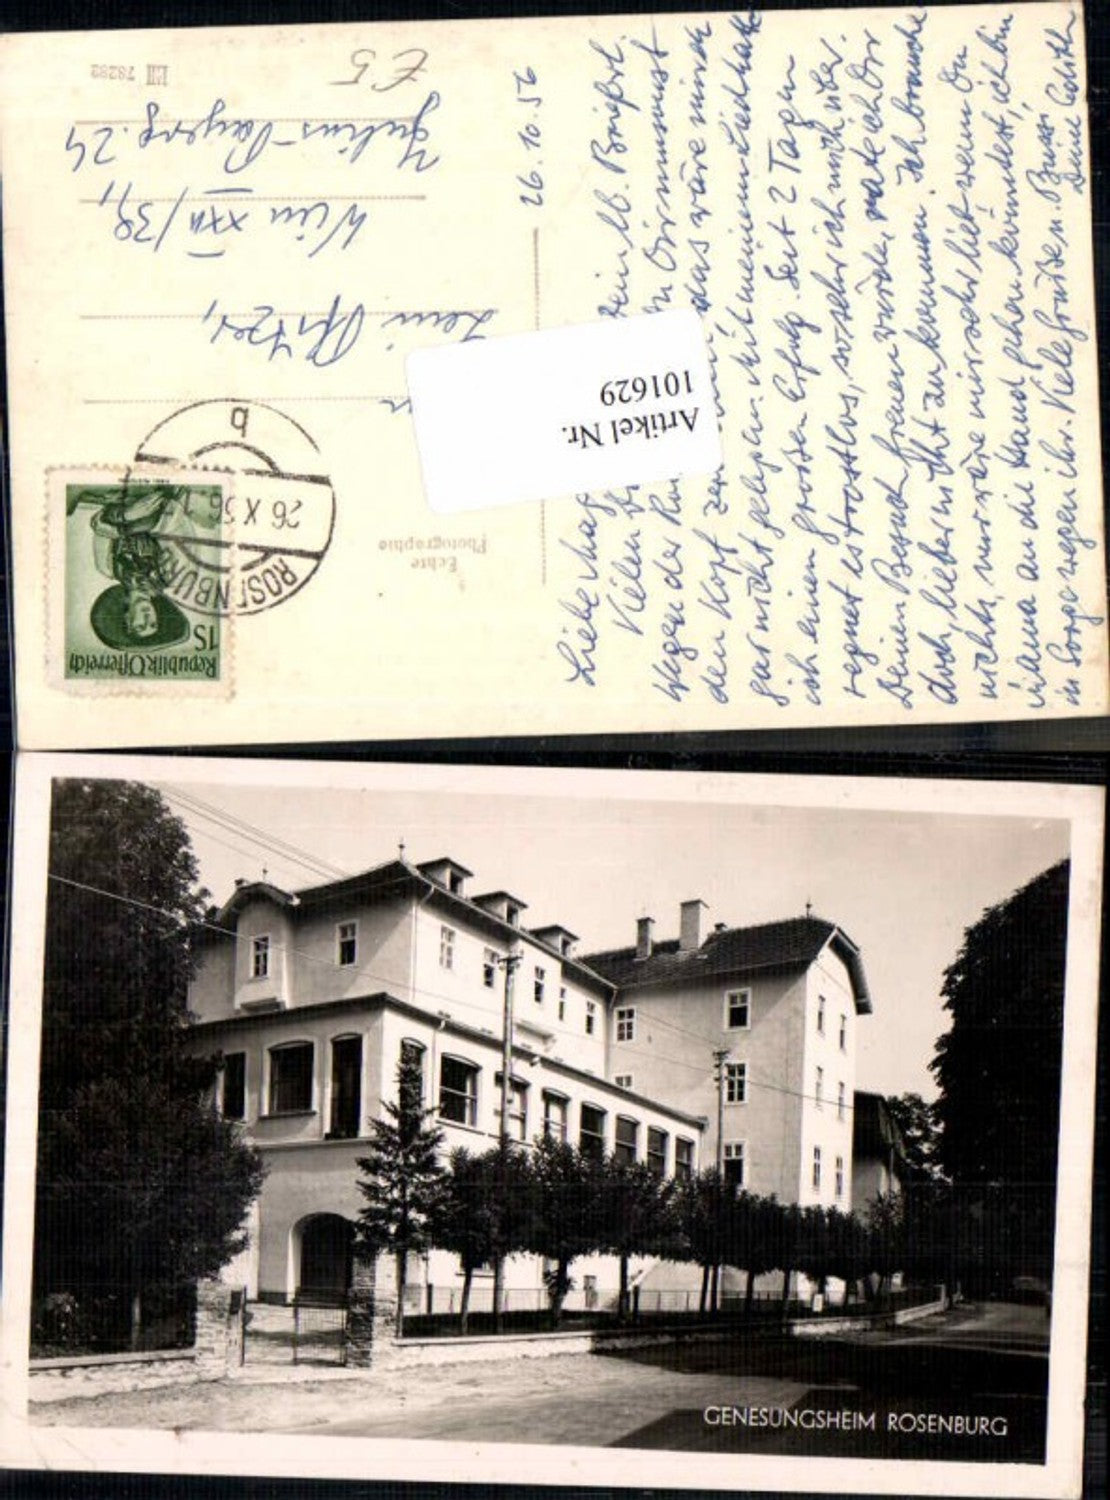 26.10.56
Liebe
Vielen Dein lb. Brieferl.
Wegen der Du Dir nun
den Kopf das wäre mir
gar nicht gelegen. Mit meinem
ich einen großen Erfolg. Seit 2 Tagen
regnet es trostlos, so sehr ich mich über
Deinen Besuch freuen würde, rate ich Dir
doch, lieber nicht zu kommen. Ich brauche
nichts, nur wäre mir sehr lieb wenn Du
Mama an die Hand gehen könntest, ich bin
in Sorge wegen ihr. Viele Grüße u. Bussi,
Deine Edith
Artikel Nr.
101629
Wien XXII/39,
24
E5
78282
Echte
Photographie
Republik Österreich
1S
ROSENBURG
26 X 56
b
GENESUNGSHEIM ROSENBURG